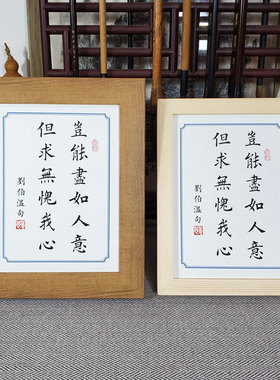 豈能盡如人意
但求無愧我心
劉伯溫句
豈能盡如人意
但求無愧我心
劉伯溫句